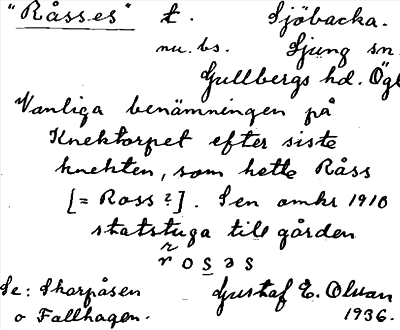 "Råsses" t. Sjöbacka.
nu. bs. Ljung sn.
Gullbergs hd. Ögl
Vanliga benämningen på
Knektorpet efter siste
knekten, som hette Råss
[= Ross?]. Sen omkr 1910
statstuga till gården
r o s ə s
Se: Skarpåsen
o Fallhagen.
Gustaf E. Olvan
1936.